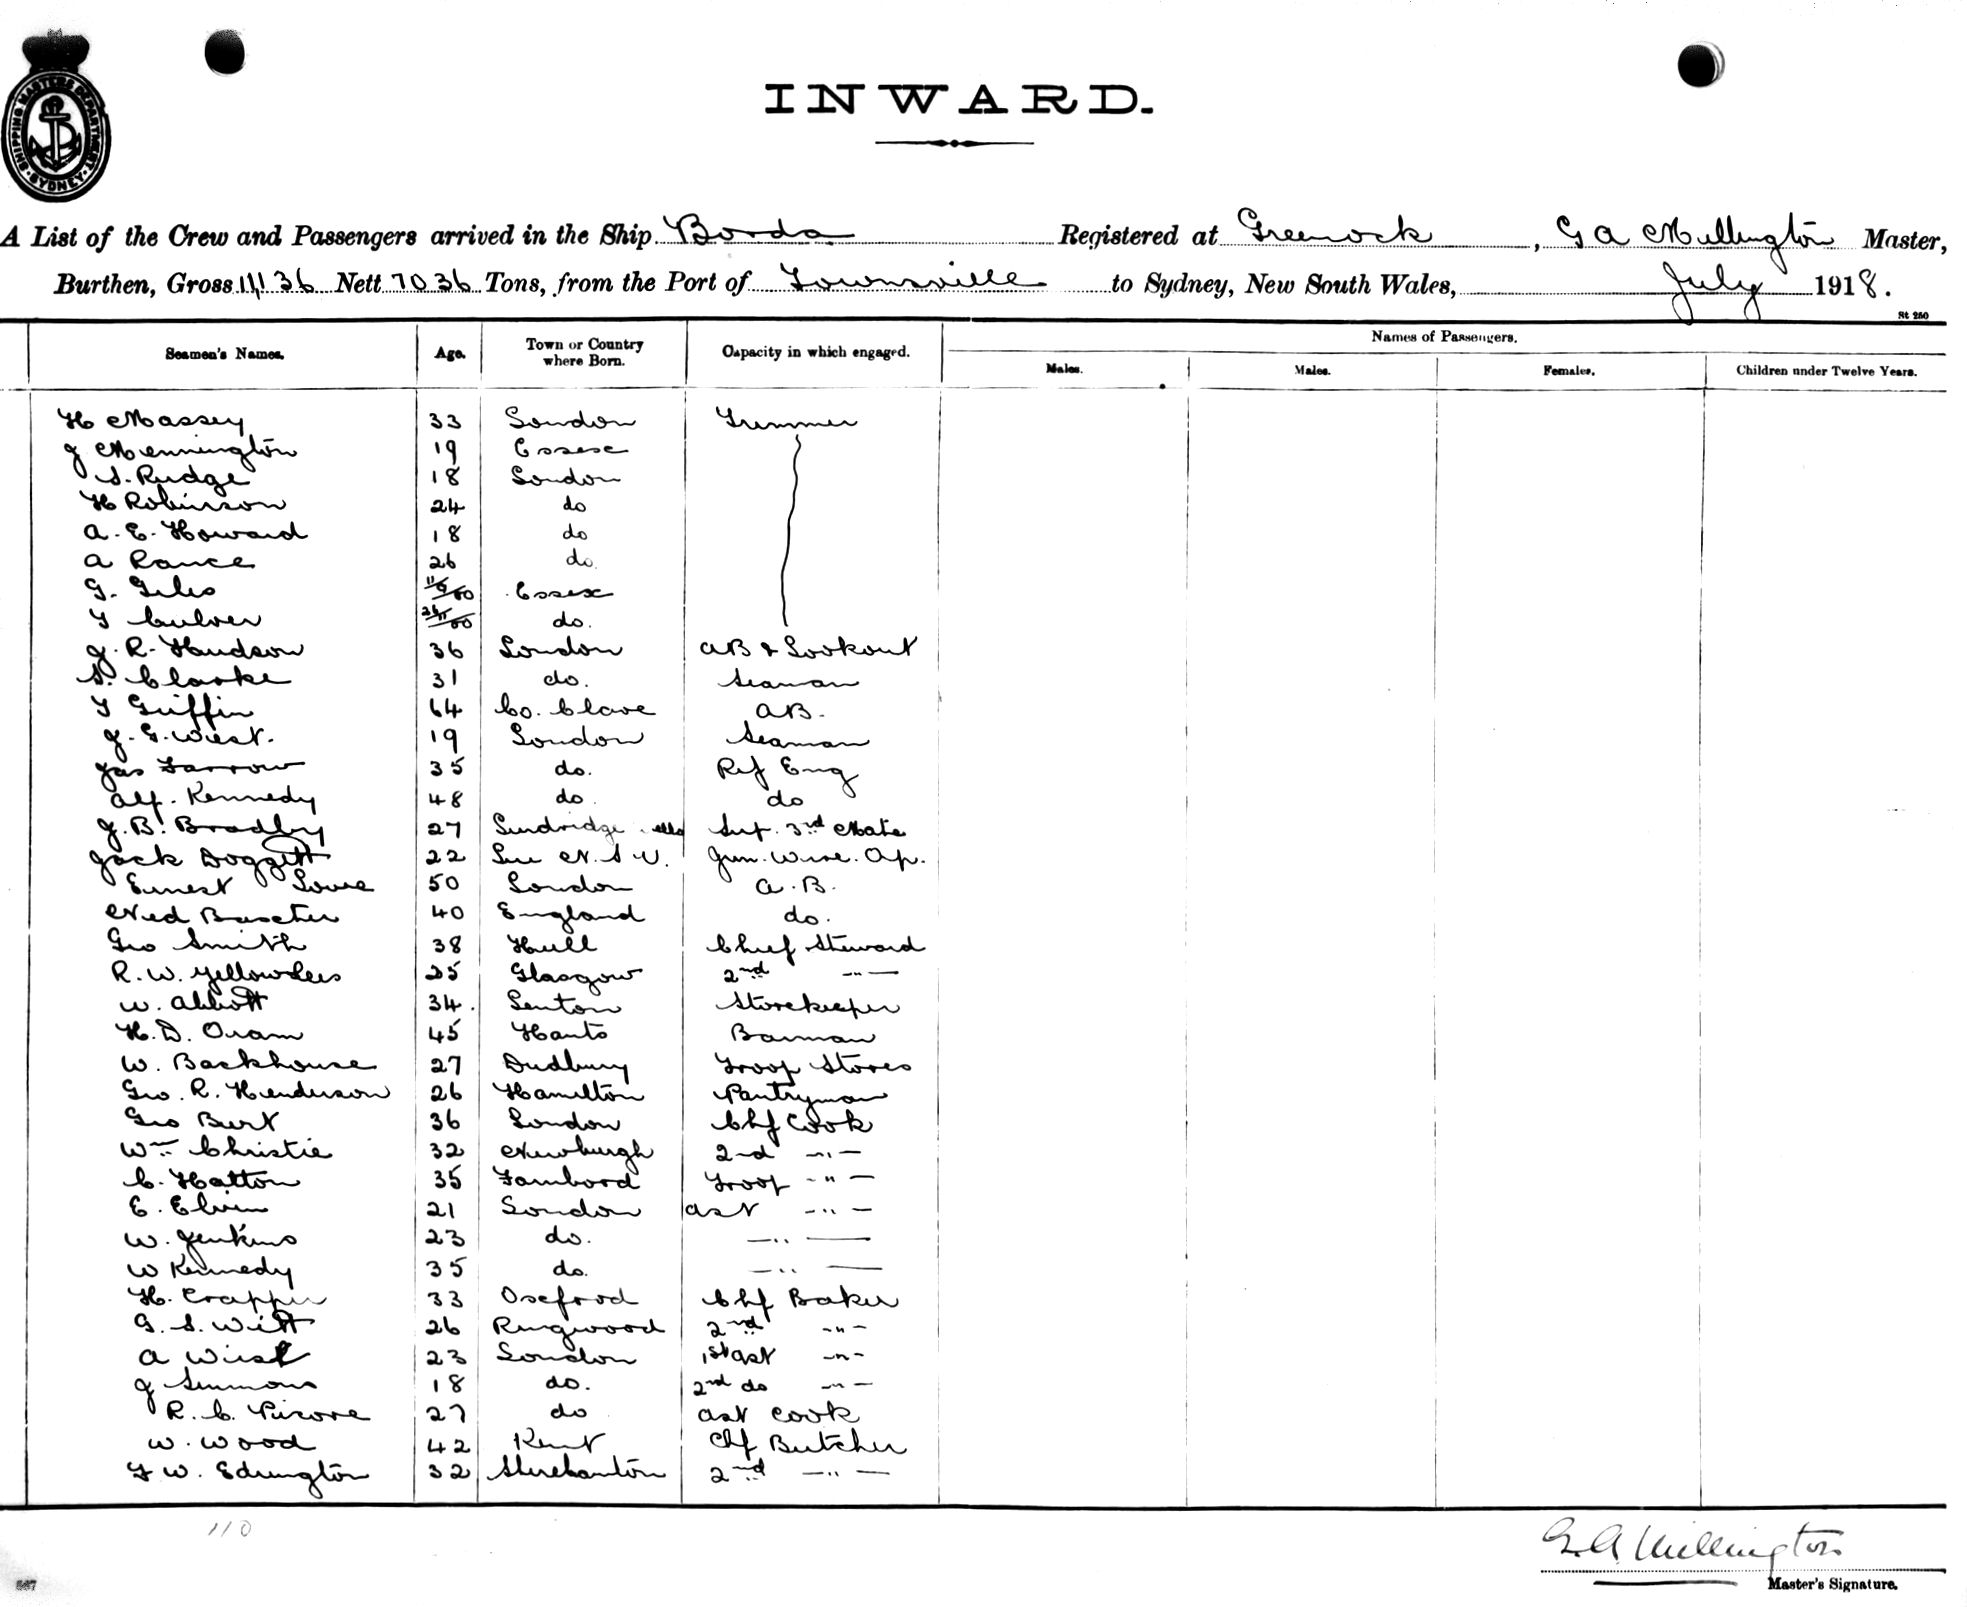 SHIPPING MASTERS DEPARTMENT
SYDNEY
INWARD.
A List of the Crew and Passengers arrived in the Ship Borda Registered at Greenock, G A Millington Master,
Burthen, Gross 11,136 Nett 7036 Tons, from the Port of Townsville to Sydney, New South Wales, July 1918.
St 250
Names of Passengers.
Seamen's Names. Age. Town or Country where Born. Capacity in which engaged. Males. Males. Females. Children under Twelve Years.
H Massey 33 London Trimmer
J Mennington 19 Essex
S. Rudge 18 London
H Robinson 24 do
A. E. Howard 18 do
A Rance 26 do
G. Giles Essex
T Culver do.
J. R. Hudson 36 London AB & Lookout
S. Clarke 31 do. Seaman
T Griffin 64 Co. Clare AB.
J. G. West. 19 London Seaman
Jas Farrow 35 do. Ref Eng
Alf. Kennedy 48 do. do
J. B. Bradby 27 Sup. 3rd Mate
Jack Doggett 22 N.S.W. Jun. Wire. Op.
Ernest Lowe 50 London A.B.
Ned Baxter 40 England do.
Geo Smith 38 Hull Chief Steward
R. W. Yellowlees 25 Glasgow 2nd -"-
W. Abbott 34. Lenton Storekeeper
H. D. Oram 45 Hants Barman
W. Backhouse 27 Dudbury Troop Stores
Geo. R. Henderson 26 Hamilton Pantryman
Geo Burt 36 London Chf Cook
Wm Christie 32 Newburgh 2nd -"-
C. Hatton 35 Troop -"-
E. Elvin 21 London Ast -"-
W. Jenkins 23 do. -"-
W Kennedy 35 do. -"-
H. Crapper 33 Oxford Chf Baker
G. S. Witt 26 Ringwood 2nd -"-
A West 23 London 1st Ast -"-
J Simmons 18 do. 2nd do -"-
R. C. 27 do Ast Cook
W. Wood 42 Kent Chf Butcher
F W. Edrington 32 2nd -"-
110
G. A. Millington
Master's Signature.